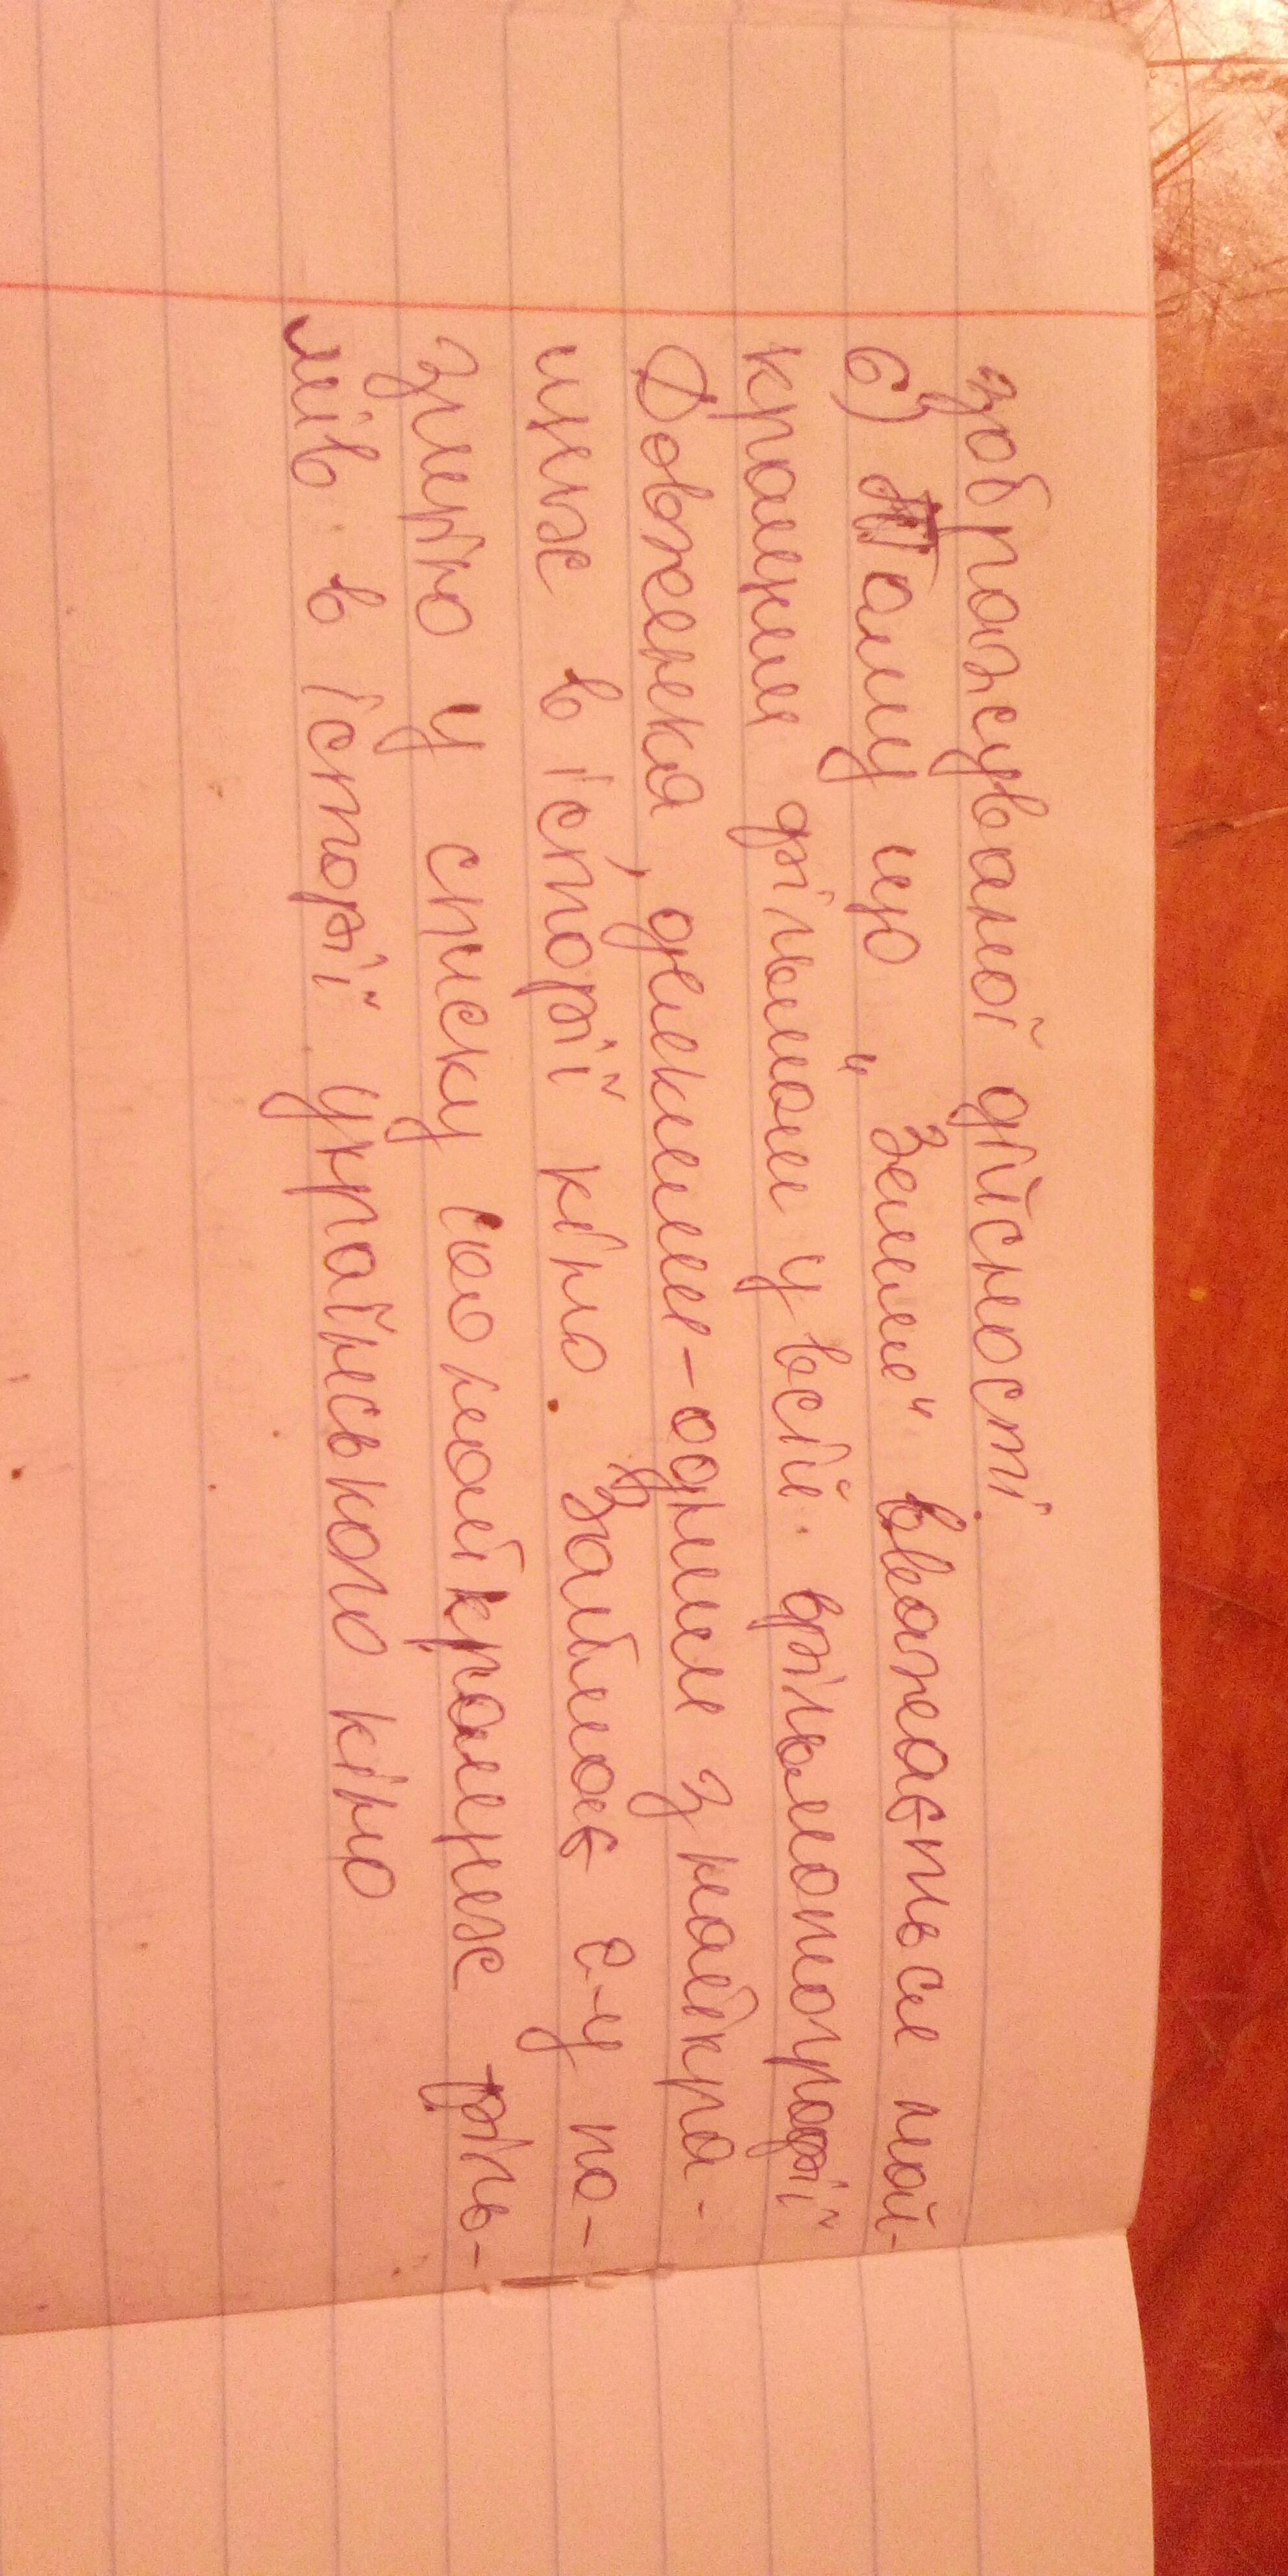 зображуваної дійсності.
6) Тому що „Земля" вважається най-
кращим фільмом у всій фільмографії
Довженка, деяким - одним з найкра-
щих в історії кіно. Займає 2-у по-
зицію у списку 100 найкращих філь-
мів в історії українського кіно